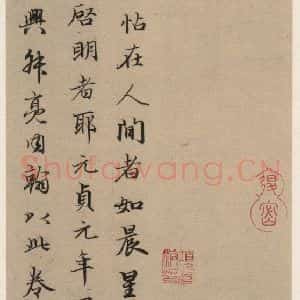 怗在人間者如晨星
啓明者耶元貞元年
興亮輔以此卷
Shufawang.CN